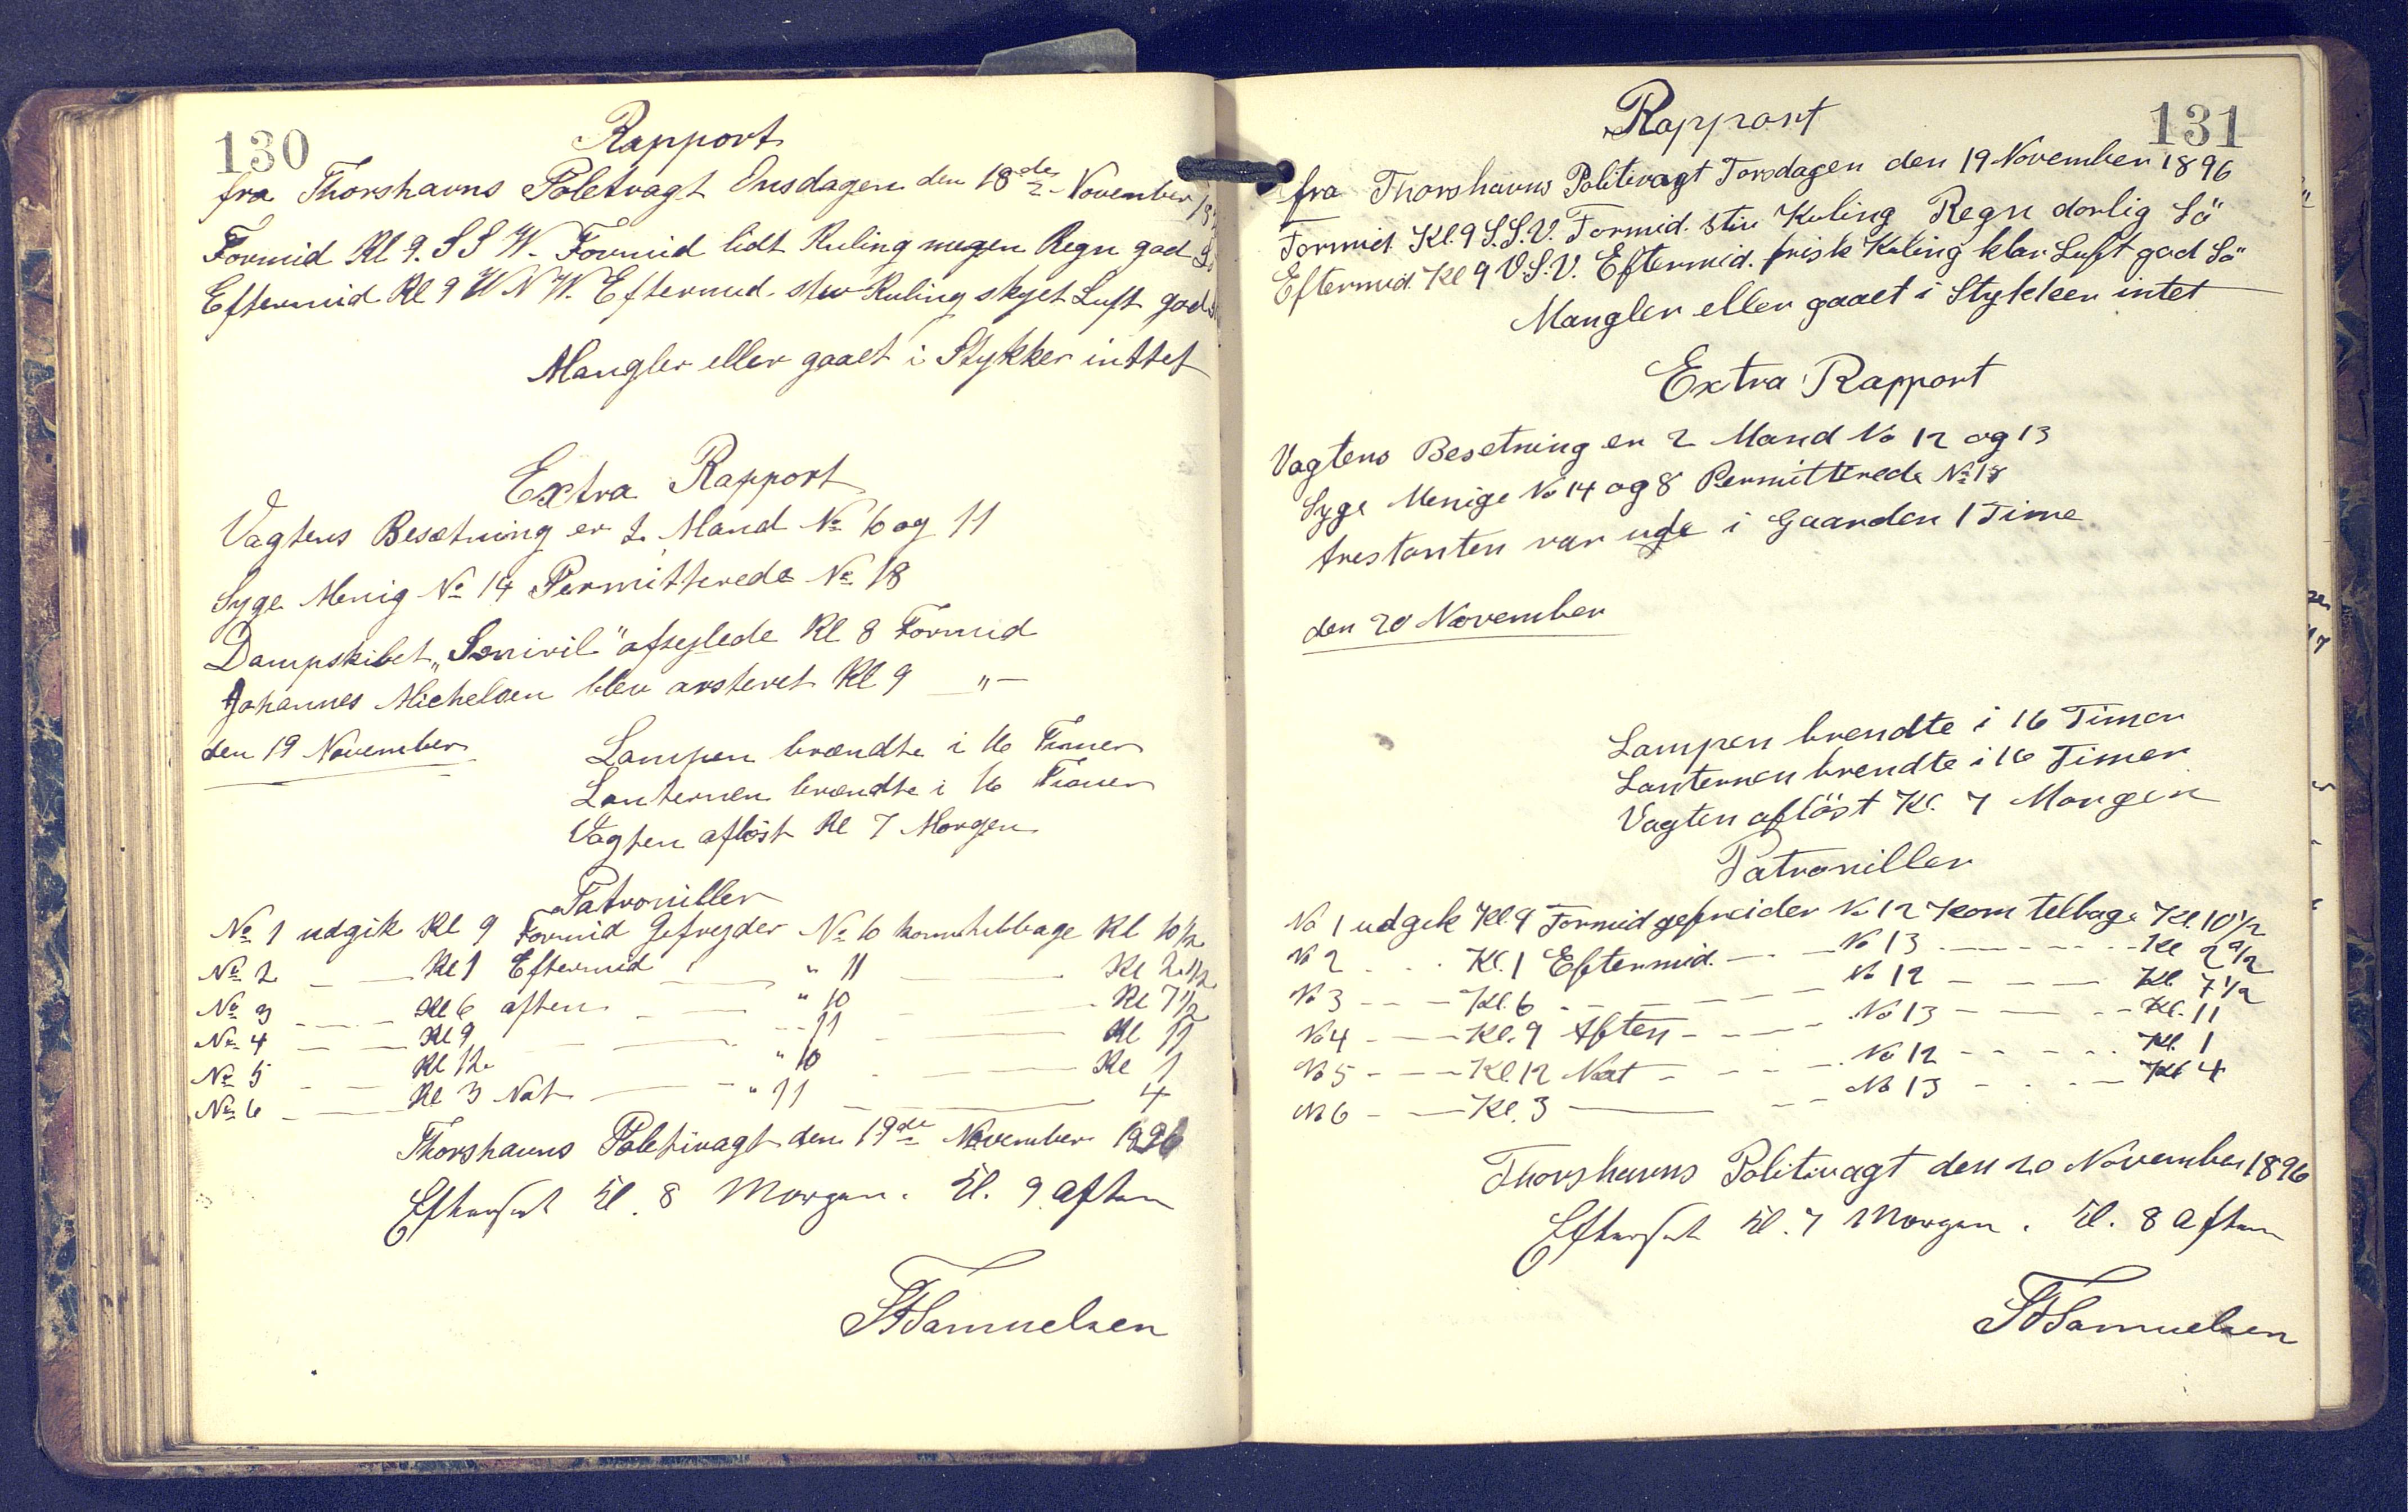 130
Rapport
fra Thorshavns Poletvagt Onsdagen den 18de November
Formid Kl 9. S S W. Formid lidt Kuling megen Regn god
Eftermid Kl 9 W N W. Eftermid. stiv Kuling skyet Luft god
Mangler eller gaaet i Stykker inttet
Extra Rapport
Vagtens Besætning er 2 Mand No 10 og 11
Syge Menig No 14 Permitterede No 18
Dampskibet afseylede Kl 8 Formid
Johannes Michelsen blev arsteret Kl 9 — " —
den 19 November
Lampen brændte i 16 Timer
Lanternen brændte i 16 Timer
Vagten afløst Kl 7 Morgen
Patroniller
No 1 udgik Kl 9 Formid Gefreyder No 10 kom tilbage Kl 10 1/2
No 2 — — Kl 1 Eftermid — " 11 — Kl 2 1/2
No 3 — — Kl 6 aften — " 10 — Kl 7 1/2
No 4 — — Kl 9 — — 11 — Kl 11
No 5 — — Kl 12 — " 10 — Kl 1
No 6 — — Kl 3 Nat — " 11 — 4
Thorshavns Poletivagt den 19de November 1896
Efterset Kl. 8 Morgen. Kl. 9 aften
Samuelsen
131
Rapport
fra Thorshavns Politivagt Torsdagen den 19 November 1896
Formid. Kl. 9 S.S.V. Formid. stiv Kuling Regn dorlig Sö
Eftermid. Kl 9 V.S.V. Eftermid. frisk Kuling klar Luft god Sö
Mangler eller gaaet i Stykker intet
Extra Rapport
Vagtens Besetning er 2 Mand No 12 og 13
Syge Menige No 14 og 8 Permitterede No 18
Arestanten var ude i Gaarden 1 Time
den 20 November
Lampen brendte i 16 Timer
Lanternen brendte i 16 Timer
Vagten aflöst Kl. 7 Morgen
Patroniller
No 1 udgik Kl. 9 Formid gefreider No 12 kom telbage Kl. 10 1/2
No 2 . . . Kl. 1 Eftermid. — No 13 — Kl 2 1/2
No 3 — — Kl. 6 — — No 12 — Kl 7 1/2
No 4 — — Kl. 9 Aften — — No 13 — Kl. 11
No 5 — — Kl. 12 Nat — — No 12 — Kl. 1
No 6 — — Kl. 3 — — No 13 — Kl 4
Thorshavns Politivagt den 20 November 1896
Efterset Kl. 7 Morgen. Kl. 8 Aften
Samuelsen